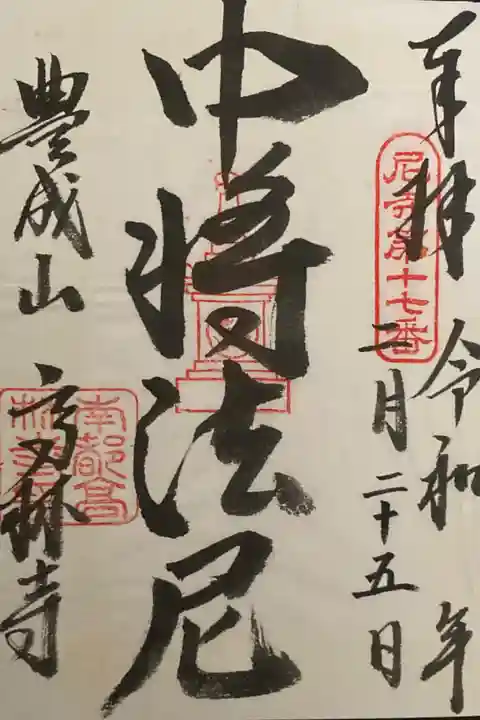 奉拝 令和 年
尼寺第十七番
二月二十五日
中将法尼
豊成山 高林寺
南都高
林寺